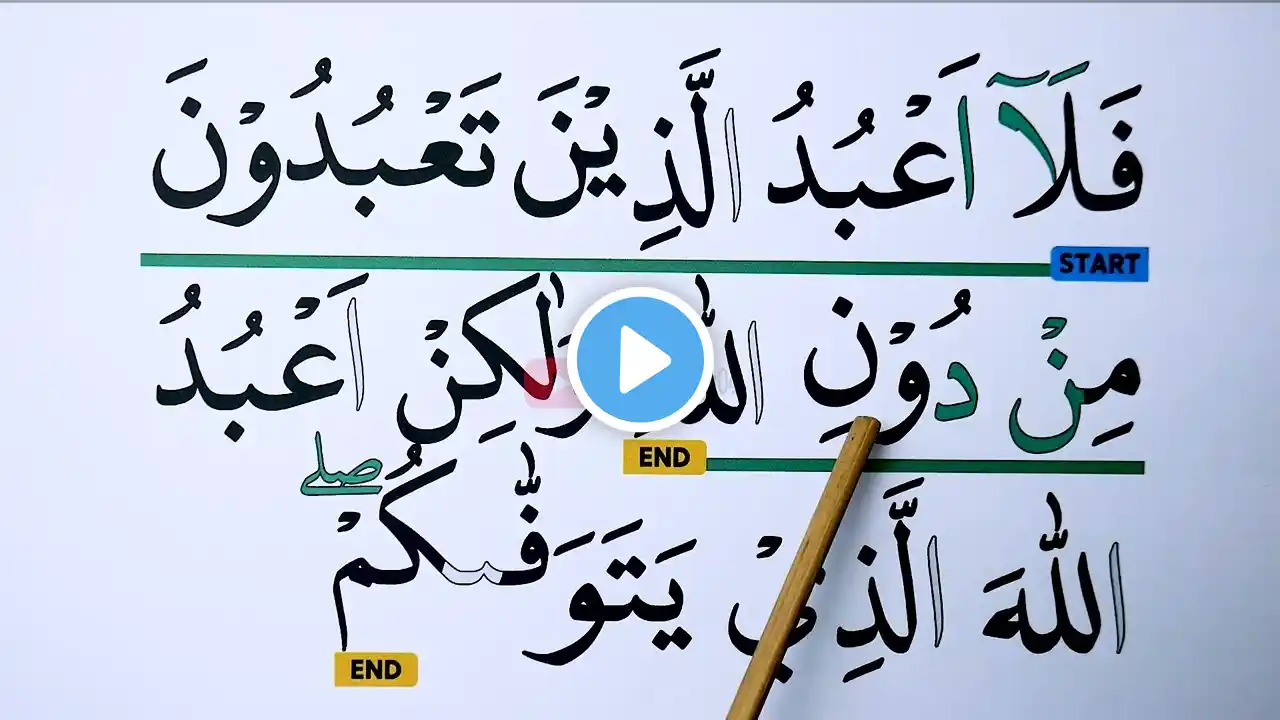 فَلَآ اَعْبُدُ الَّذِيْنَ تَعْبُدُوْنَ
START
مِنْ دُوْنِ اللّٰهِ وَلٰكِنْ اَعْبُدُ
END
صلے
اللّٰهَ الَّذِيْ يَتَوَفّٰىكُمْ
END